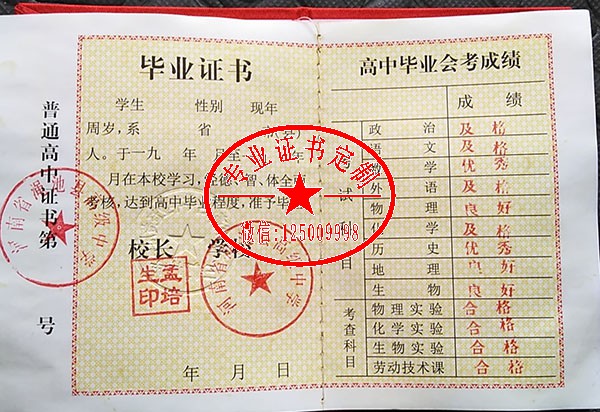 毕业证书
学生 性别 现年
周岁,系 省
人。于一九 年 月至 年
月在本校学习,经德、智、体全面
考核,达到高中毕业程度,准予毕
校长 学校
年 月 日
普通高中证书第 号
孟培
生印
专业证书定制
微信:125009998
高中毕业会考成绩
成绩
政治 及格
语文 及格
数学 优秀
外语 及格
物理 良好
化学 及格
历史 优秀
地理 良好
生物 良好
考试科目
物理实验 合格
化学实验 合格
生物实验 合格
劳动技术课 合格
考查科目